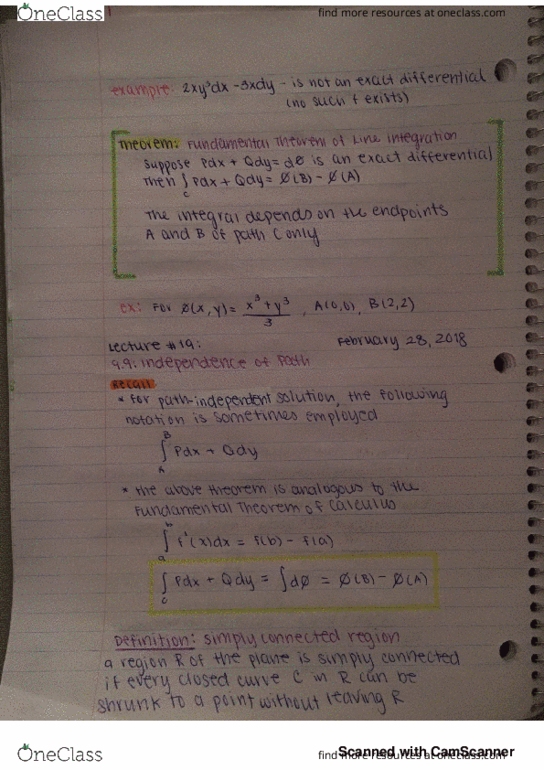 OneClass
find more resources at oneclass.com
example: 2xy³dx - 3xdy - is not an exact differential
(no such f exists)
Theorem: Fundamental Theorem of Line Integration
Suppose Pdx + Qdy = dø is an exact differential
Then ∫ Pdx + Qdy = Ø(B) - Ø(A)
C
The integral depends on the endpoints
A and B of path C only
ex: For Ø(x,y) = x³ + y³ / 3 , A(0,0), B(2,2)
Lecture #19: February 28, 2018
9.9: independence of Path
Recall
* for path-independent solution, the following
notation is sometimes employed
B
∫ Pdx + Qdy
A
* the above theorem is analogous to the
Fundamental Theorem of Calculus
b
∫ f'(x)dx = f(b) - f(a)
a
∫ Pdx + Qdy = ∫dø = Ø(B) - Ø(A)
C
Definition: simply connected region
a region R of the plane is simply connected
if every closed curve C in R can be
shrunk to a point without leaving R
OneClass
find more resources at oneclass.com
Scanned with CamScanner